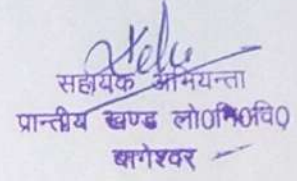 सहायक अभियन्ता
प्रान्तीय खण्ड लो०नि०वि०
बागेश्वर